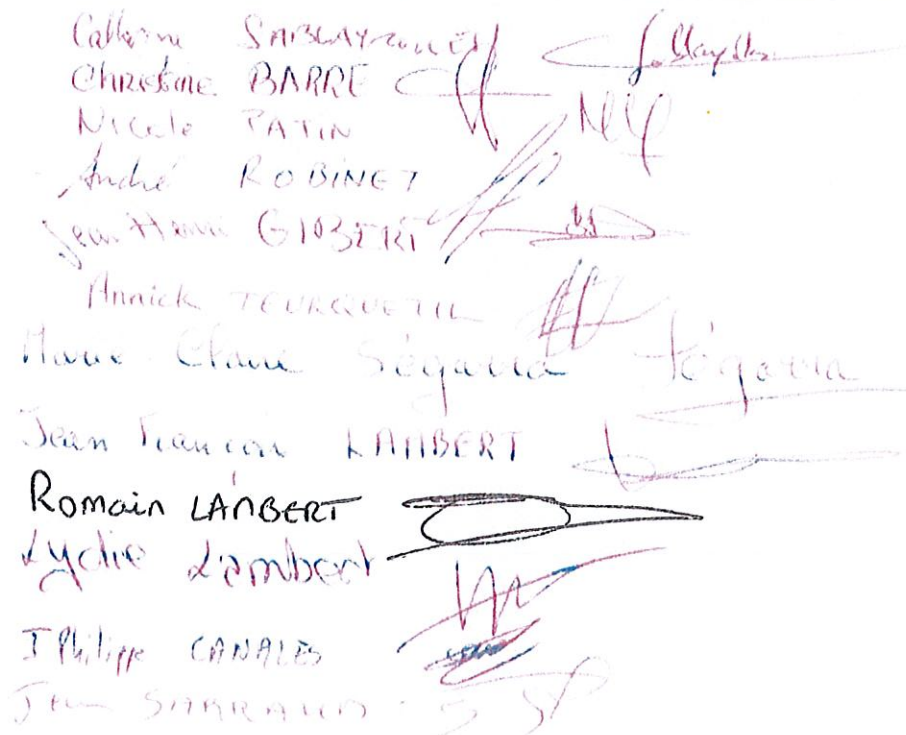 Catherine
Christine BARRE
Nicole PATIN
André ROBINET
Jean Henri GIBERT
Annick TEURQUETIL
Marie-Claire Ségarra Ségarra
Jean François LAMBERT
Romain LAMBERT
Lydie Lambert
J Philippe CANALES
Jean